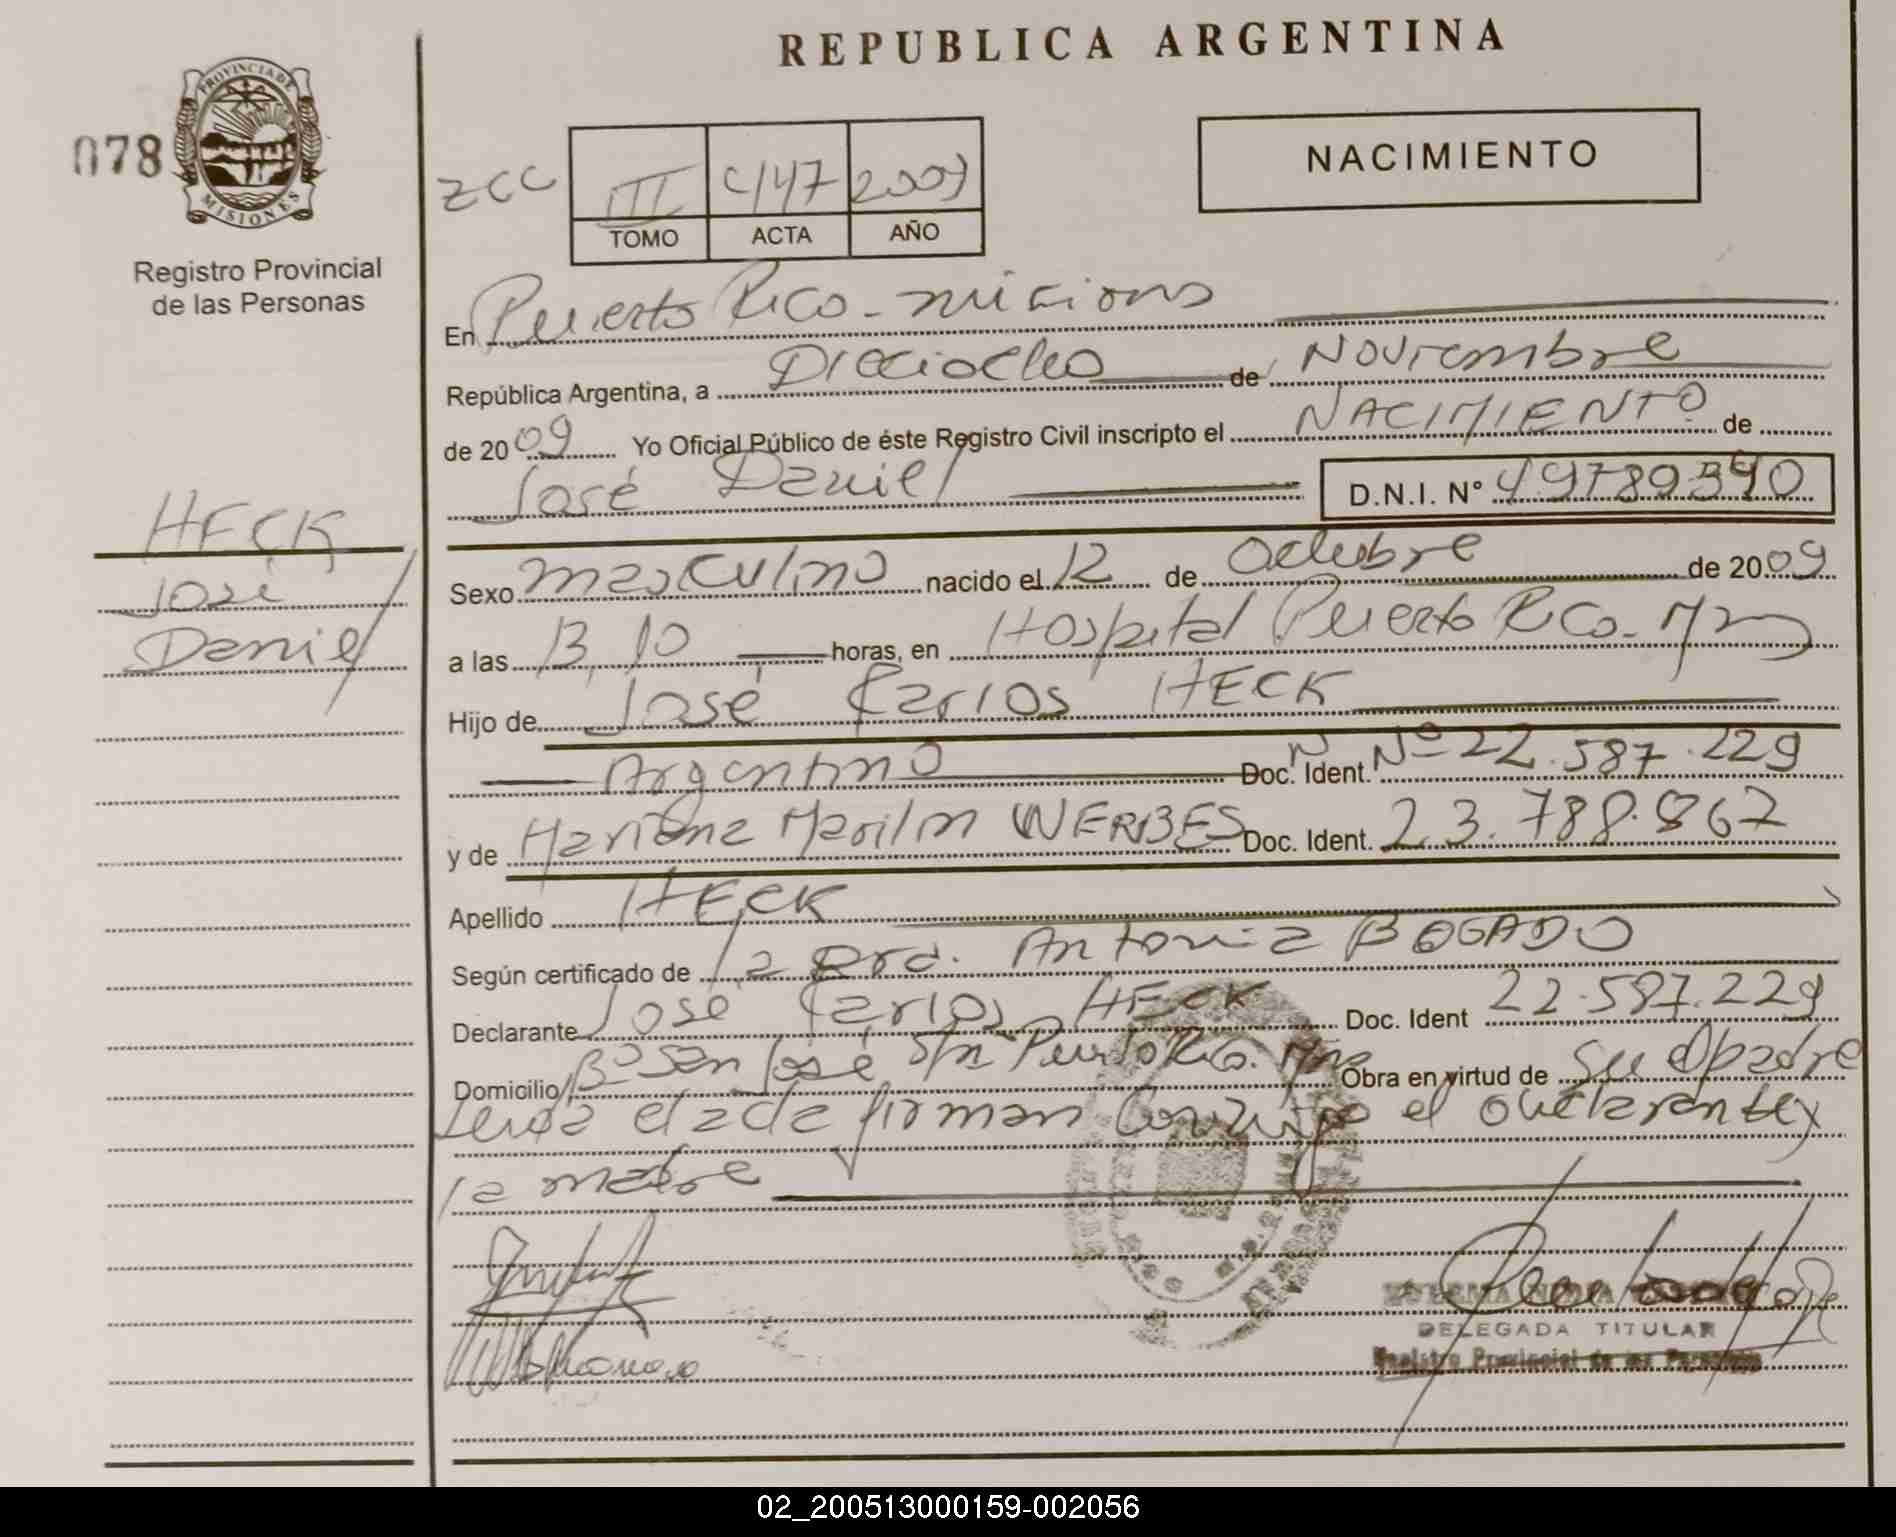 REPUBLICA ARGENTINA
PROVINCIA DE
MISIONES
078
Registro Provincial
de las Personas
NACIMIENTO
ZCC III 447 2009
TOMO ACTA AÑO
En Puerto Rico - Misiones
República Argentina, a Dieciocho de Noviembre
de 2009 Yo Oficial Público de éste Registro Civil inscripto el NACIMIENTO de
José Daniel D.N.I. Nº 49789540
HECK
José
Daniel
Sexo masculino nacido el 12 de Octubre de 2009
a las 13,10 horas, en Hospital Puerto Rico - Mnes
Hijo de José Carlos HECK
Argentino Doc. Ident. Nº 22.587.229
y de Mariana Marilin WERBES Doc. Ident. 23.788.867
Apellido HECK
Según certificado de la Ord. Antonia BOGADO
Declarante José Carlos HECK Doc. Ident 22.587.229
Domicilio Bº San José S/n Puerto Rico. Mnes Obra en virtud de su padre
Leida el acta firman conmigo el declarante y
la madre
DELEGADA TITULAR
Registro Provincial de las Personas
02_200513000159-002056